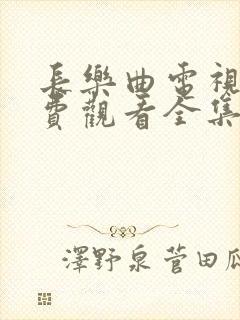 長樂曲電視
費觀看全集
澤野泉菅田瓜